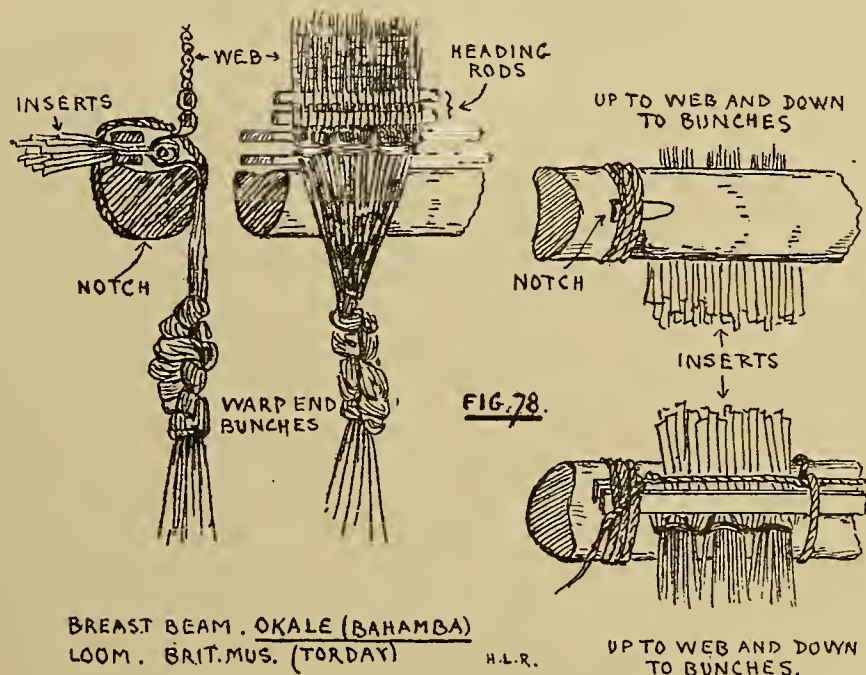 ←WEB→
HEADING
RODS
INSERTS
UP TO WEB AND DOWN
TO BUNCHES
NOTCH
NOTCH
INSERTS
WARP END
BUNCHES
FIG.78.
BREAST BEAM. OKALE (BAHAMBA)
LOOM. BRIT. MUS. (TORDAY)
H.L.R.
UP TO WEB AND DOWN
TO BUNCHES.